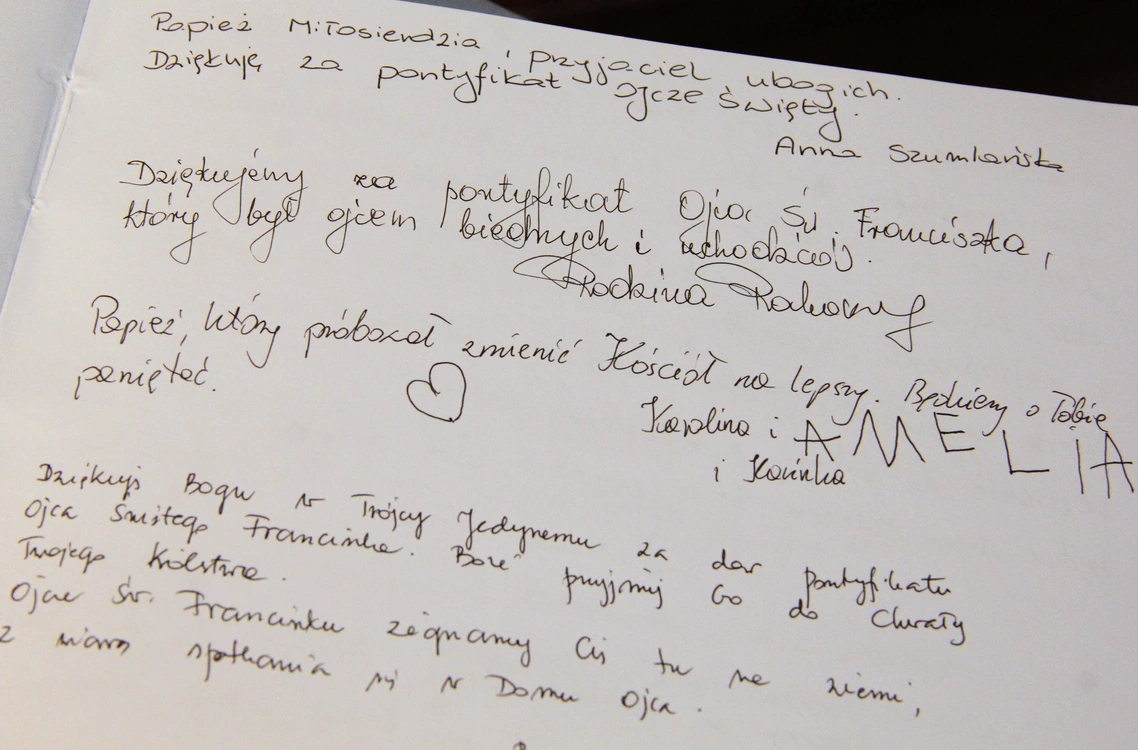 Papież Miłosierdzia i przyjaciel ubogich.
Dziękuję za pontyfikat Ojcze Święty.
Anna Szumlańska
Dziękujémy za pontyfikat Ojca Św. Franciszka,
który był ojcem biednych i uchodźców.
Rodzina
Papież, który próbował zmienić Kościół na lepszy. Będziemy o Tobie
pamiętać.
Karolina i AMELIA
i Karinka
Dziękuję Bogu w Trójcy Jedynemu za dar pontyfikatu
Ojca Świętego Franciszka. Boże przyjmij Go do Chwały
Twojego Królestwa.
Ojcze Św. Franciszku żegnamy Cię tu na ziemi,
z wiarą spotkania się w Domu Ojca.